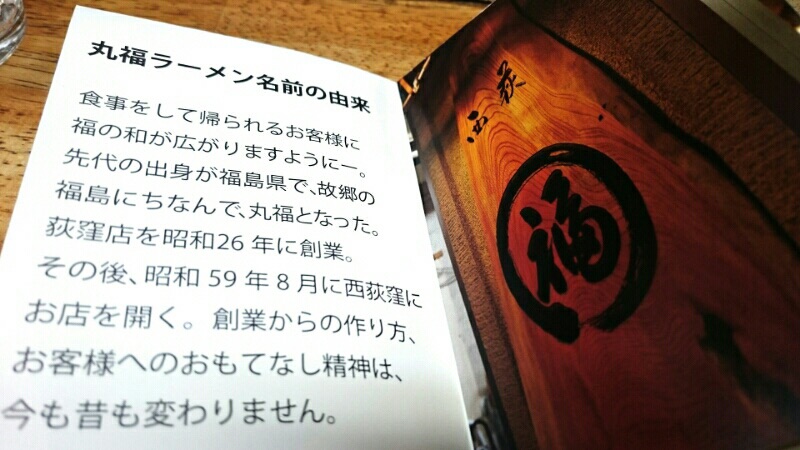 丸福ラーメン名前の由来
食事をして帰られるお客様に
福の和が広がりますようにー。
先代の出身が福島県で、故郷の
福島にちなんで、丸福となった。
荻窪店を昭和26年に創業。
その後、昭和59年8月に西荻窪に
お店を開く。創業からの作り方、
お客様へのおもてなし精神は、
今も昔も変わりません。
西荻
福